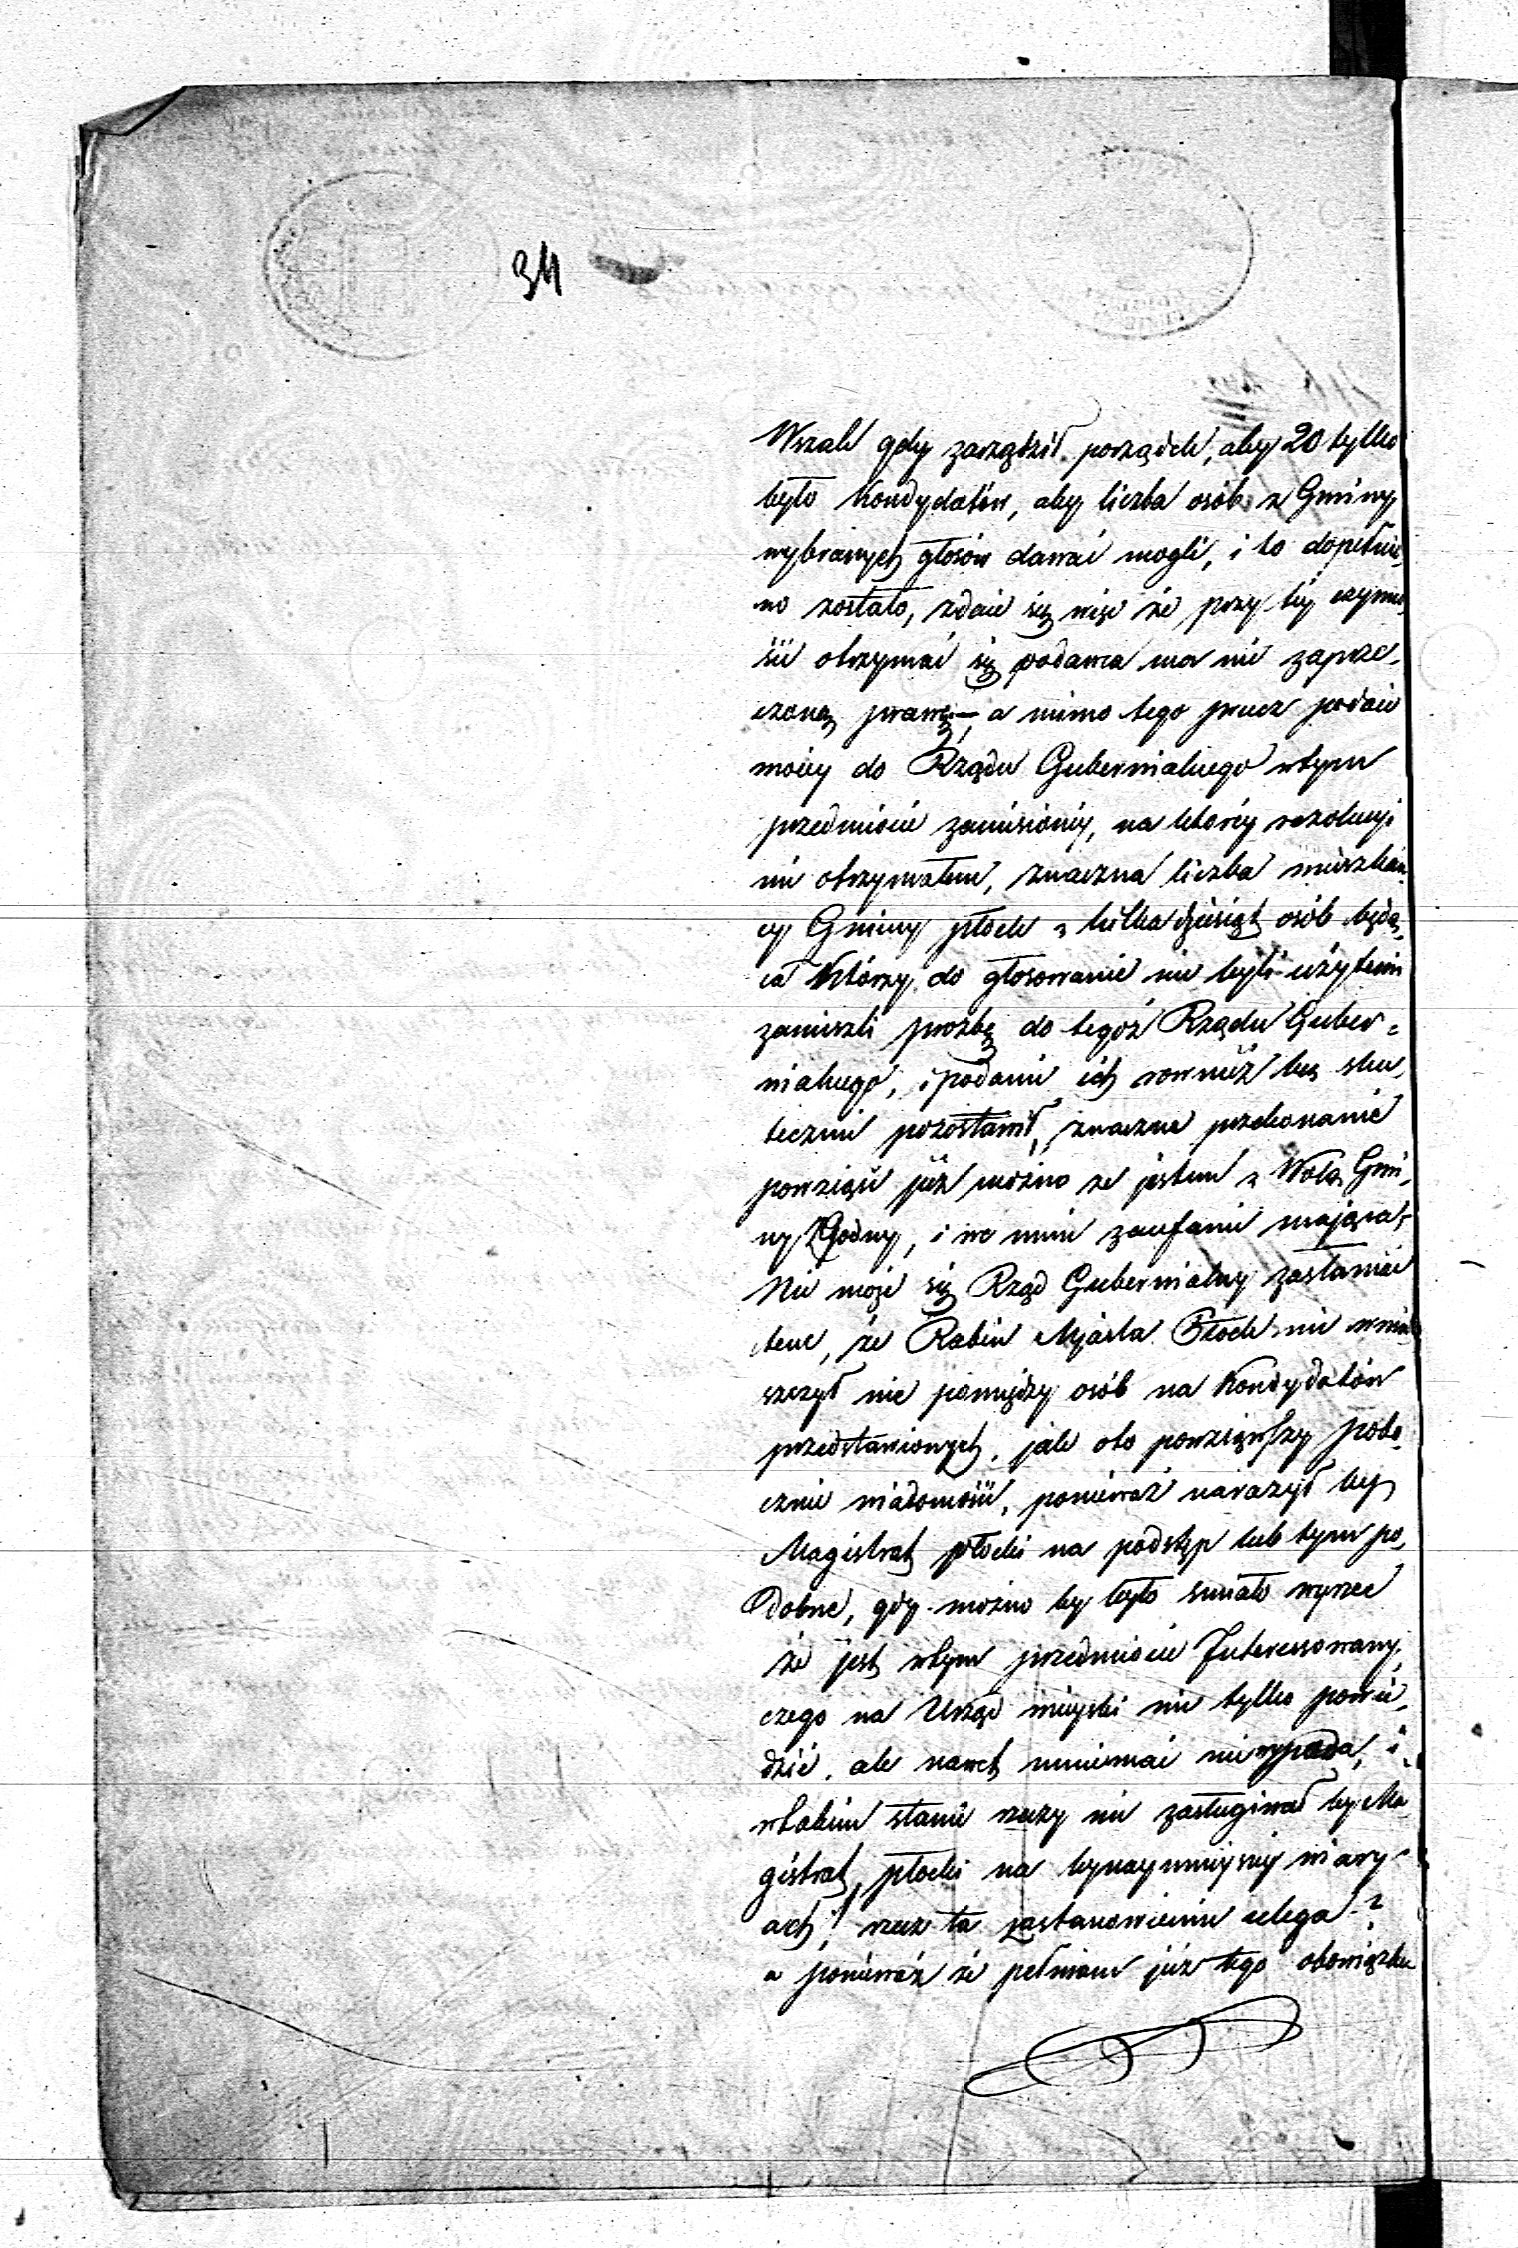 34
Wszak gdy zarządził porządek, aby 20 tylko
było Kondydatów, aby liczba osób z Gminy
wybranych głosów dawać mogli, i to dopełnio„
no zostało, zdaie się więc że przy téy czynno„
ści otrzymać się podawca ma nie zaprze„
czoną prawę—, a mimo tego przez podaie
moiey do Rządu Gubernialnego wtym
przedmiocie zaniesionéy, na któréy rezolucyi
nie otrzymałem, znaczna liczba mieszkań„
cy Gminy płock z kilka dziesiąt osób będą„
ca Którzy do głosowanie nie byli użytemi
zanieszli prozbę do tegoż Rządu Guber„
nialnego, i podanie ich rownież bez sku„
tecznie pozostawił, znaczne przekonanie
powziąść już można że jestem z Wolą Gmi„
ny Zgodny, i we mnie zaufanie mająca;
Nie może się Rząd Gubernialny zasłaniać
tem, że Rabin Mjasta Płock nie wmie
szczył nie pomiędzy osób na Kondydatów
przedstawionych, jak oto powziąwszy pobo„
cznie wiadomość, ponieważ naraził by
Magistrat płocki na podstęp lub tym po„
dobne, gdy można by było smiało wyrzec
że jest wtym przedmiocie Interessowany,
czego na Urząd mieyski nie tylko powie„
dzić, ale nawet mniemać niewypada, i
wtakim stanie rzeczy nie zasługiwał by Ma
gistrat płocki na bynaymnieyszéy wiary
ach! rzecz ta zastanowieniu ulega?
a ponieważ że pełniam już tego obowiązku